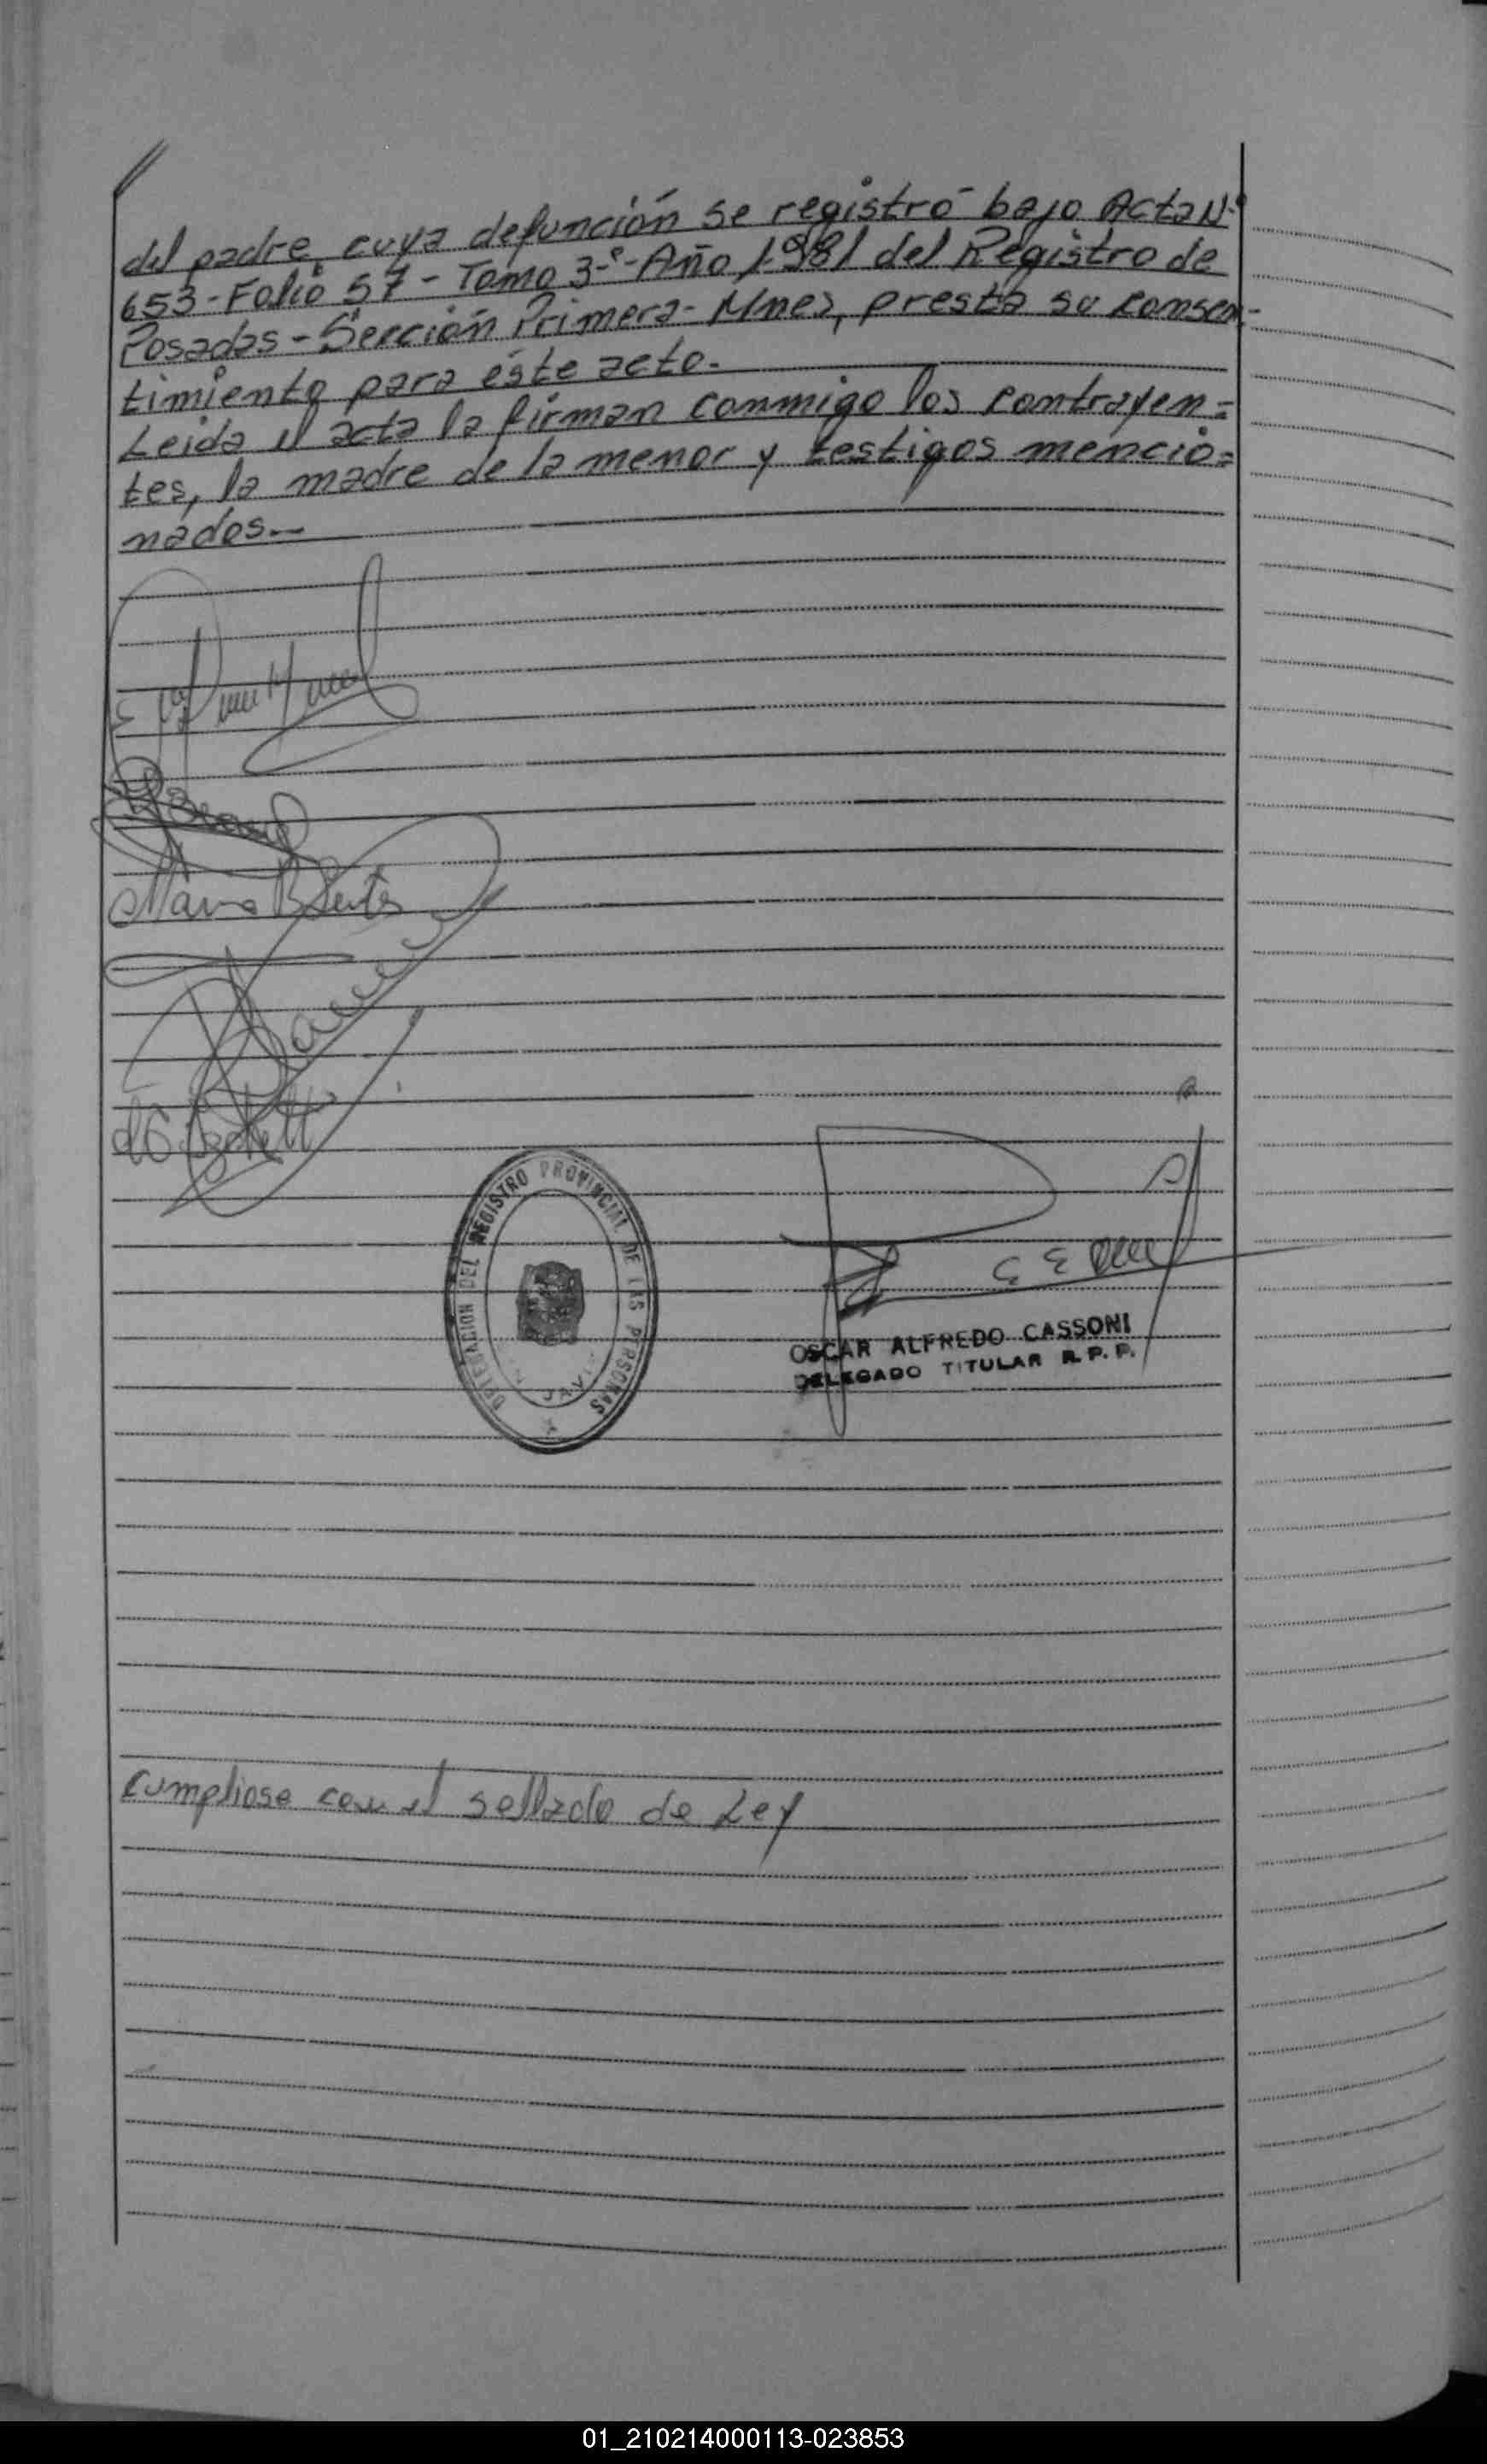 del padre, cuya defunción se registró bajo Acta Nº
653-Folio 57-Tomo 3º-Año 1.981 del Registro de
Posadas-Sección Primera-Mnes, presta su consen-
timiento para éste acto.-
Leida el acta la firman conmigo los contrayen=
tes, la madre de la menor y testigos mencio=
nados.-
DELEGACION DEL REGISTRO PROVINCIAL DE LAS PERSONAS
JAVI
OSCAR ALFREDO CASSONI
DELEGADO TITULAR R.P.P.
Cumpliose con el sellado de Ley
01_210214000113-023853